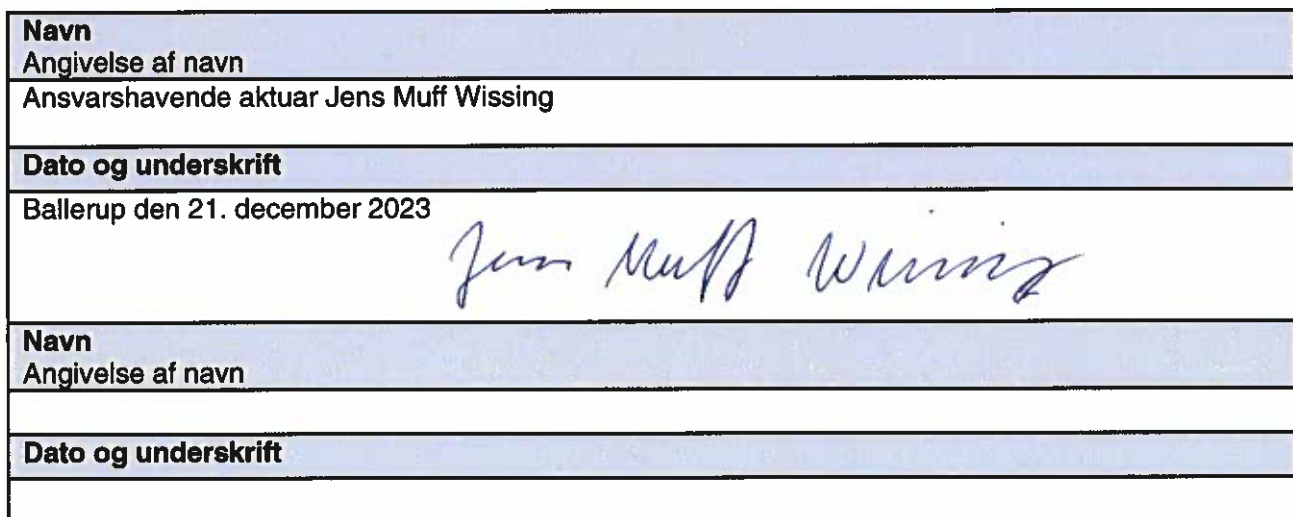 Navn
Angivelse af navn
Ansvarshavende aktuar Jens Muff Wissing
Dato og underskrift
Ballerup den 21. december 2023
Jens Muff Wissing
Navn
Angivelse af navn
Dato og underskrift